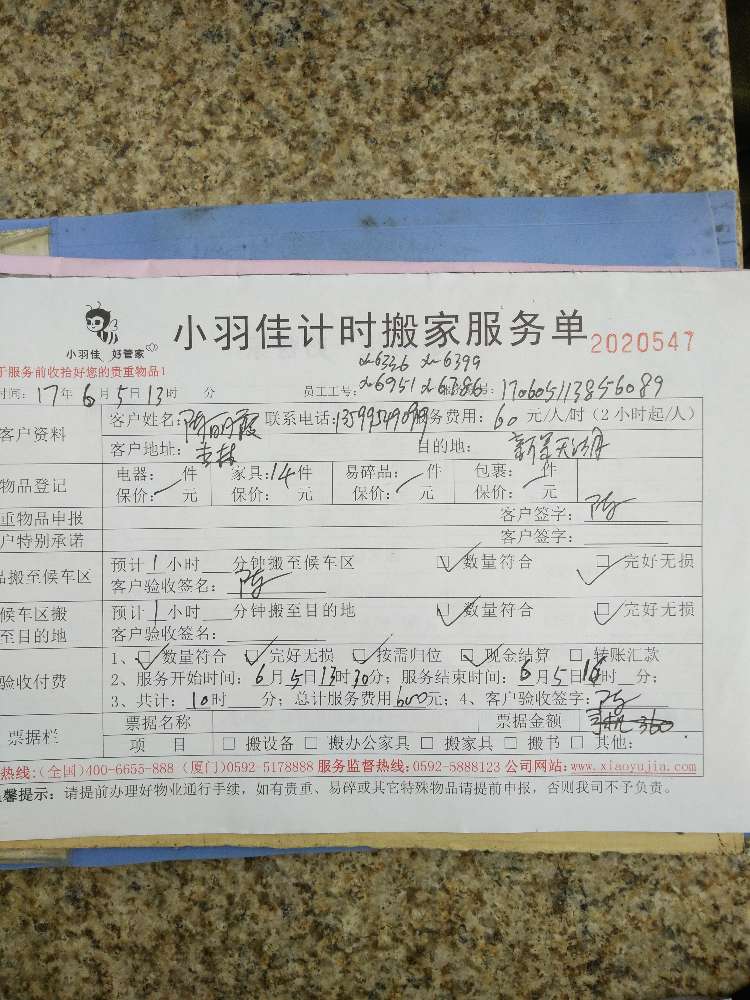 小羽佳 好管家
小羽佳计时搬家服务单 2020545
于服务前收拾好您的贵重物品!
时间: 17年 6月5日13时 分 员工工号: 号: 17060511385 6089
客户资料 客户姓名: 联系电话: 服务费用: 60 元/人/时 (2小时起/人)
客户地址: 吉林 目的地:
物品登记 电器: 件 家具:14件 易碎品: 件 包裹: 件
保价: 元 保价: 元 保价: 元 保价: 元
重物品申报 客户签字:
户特别承诺 客户签字:
品搬至候车区 预计1小时 分钟搬至候车区 数量符合 完好无损
客户验收签名:
候车区搬 预计1小时 分钟搬至目的地 数量符合 完好无损
至目的地 客户验收签名:
验收付费 1、 数量符合 完好无损 按需归位 现金结算 转账汇款
2、服务开始时间: 6月5日13时30分; 服务结束时间: 6月5日 时 分;
3、共计: 10时 分; 总计服务费用600元; 4、客户验收签字:
票据栏 票据名称 票据金额
项 目 搬设备 搬办公家具 搬家具 搬书 其他:
热线: (全国)400-6655-888 (厦门)0592-5178888 服务监督热线: 0592-5888123 公司网站: www.xiaoyujia.com
馨提示: 请提前办理好物业通行手续, 如有贵重、易碎或其它特殊物品请提前申报, 否则我司不予负责。